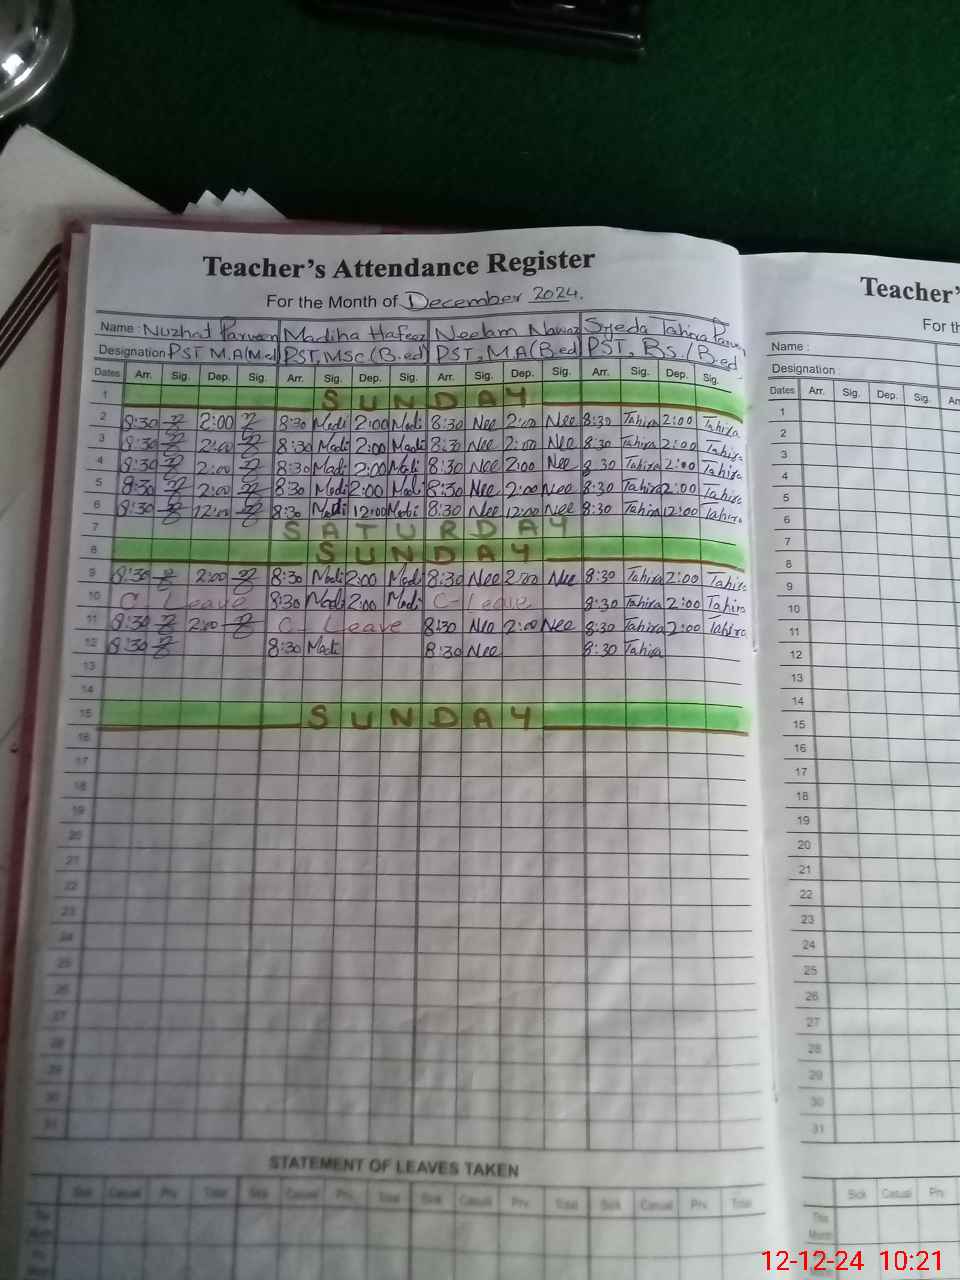 Teacher's Attendance Register
For the Month of December 2024.
Name : Nuzhat Parveen Madiha Hafeez Neelam Nawaz Syeda Tahira Parveen
Designation PST M.A (M.ed) PST, MSc (B.ed) PST, M.A (B.ed) PST, Bs./B.ed
Dates Arr. Sig. Dep. Sig. Arr. Sig. Dep. Sig. Arr. Sig. Dep. Sig. Arr. Sig. Dep. Sig.
1 SUNDAY
2 8:30 2:00 8:30 Madi 2:00 Madi 8:30 Nee 2:00 Nee 8:30 Tahira 2:00 Tahira
3 8:30 2:00 8:30 Madi 2:00 Madi 8:30 Nee 2:00 Nee 8:30 Tahira 2:00 Tahira
4 8:30 2:00 8:30 Madi 2:00 Madi 8:30 Nee 2:00 Nee 8 30 Tahira 2:00 Tahira
5 8:30 2:00 8:30 Madi 2:00 Madi 8:30 Nee 2:00 Nee 8:30 Tahira 2:00 Tahira
6 8:30 12:00 8:30 Madi 12:00 Madi 8:30 Nee 12:00 Nee 8:30 Tahira 12:00 Tahira
7 SATURDAY
8 SUNDAY
9 8:30 2:00 8:30 Madi 2:00 Madi 8:30 Nee 2:00 Nee 8:30 Tahira 2:00 Tahira
10 C- Leave 8:30 Madi 2:00 Madi C-Leave 8:30 Tahira 2:00 Tahira
11 8:30 2:00 C- Leave 8:30 Nee 2:00 Nee 8:30 Tahira 2:00 Tahira
12 8:30 8:30 Madi 8:30 Nee 8:30 Tahira
13
14
15 SUNDAY
16
17
18
19
20
21
22
23
24
25
26
27
28
29
30
31
STATEMENT OF LEAVES TAKEN
Sick Casual Prv. Total Sick Casual Prv. Total Sick Casual Prv. Total Sick Casual Prv. Total
This
Month
Prv.
Teacher'
For th
Name :
Designation :
Dates Arr. Sig. Dep. Sig. Arr
1
2
3
4
5
6
7
8
9
10
11
12
13
14
15
16
17
18
19
20
21
22
23
24
25
26
27
28
29
30
31
Sick Casual Prv.
This
Month
12-12-24 10:21